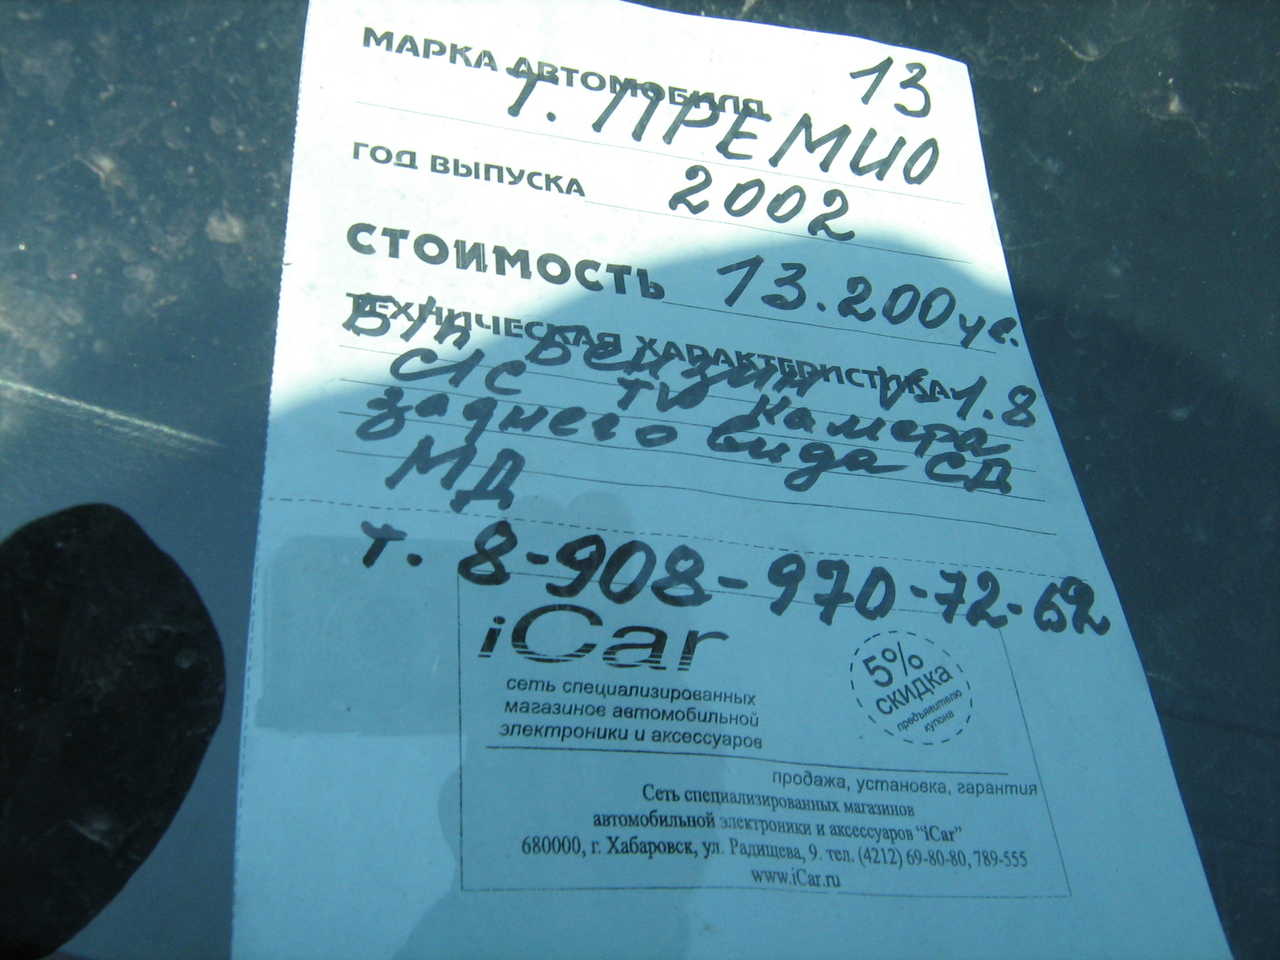 13
МАРКА АВТОМОБИЛЯ Т. ПРЕМИО
ГОД ВЫПУСКА 2002
СТОИМОСТЬ 13.200 уе.
ТЕХНИЧЕСКАЯ ХАРАКТЕРИСТИКА
Б/п бензин 1.8
С/С TV камера
заднего вида СД
МД
т. 8-908-970-72-62
iCar
сеть специализированных
магазинов автомобильной
электроники и аксессуаров
5%
СКИДКА
предъявителю
купона
продажа, установка, гарантия
Сеть специализированных магазинов
автомобильной электроники и аксессуаров "iCar"
680000, г. Хабаровск, ул. Радищева, 9. тел. (4212) 69-80-80, 789-555
www.iCar.ru